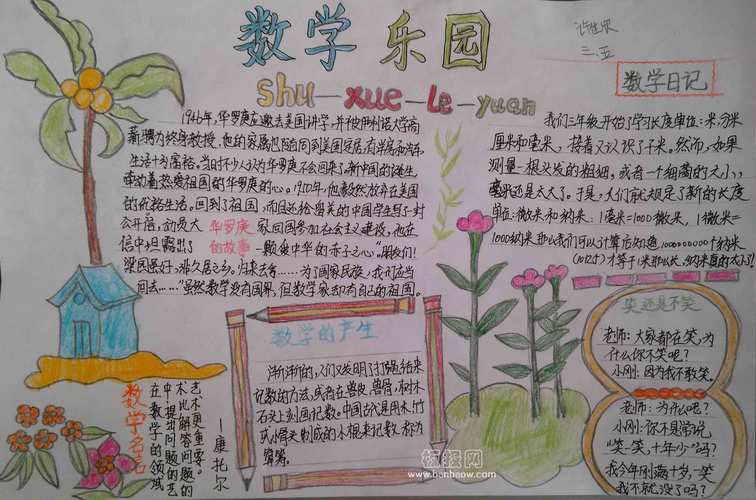 数学乐园
shu-xue-Le-yuan
三、五
数学日记
1946年,华罗庚应邀去美国讲学,并被伊利诺大学高
薪聘为终身教授,他的家属也随同到美国定居,有洋房和汽车,
生活十分富裕。当时不少人认为华罗庚不会回来了。新中国的诞生,
牵动着热爱祖国的华罗庚的心。1950年,他毅然放弃在美国
的优裕生活。回到了祖国,而且还给留美的中国学生写了一封
公开信,动员大
家回国参加社会主义建设,他在
信中坦露出了
一颗爱中华的赤子之心“朋友们!
华罗庚
的故事
梁园虽好,非久居之乡。归来去兮……为了国家民族,我们应当
回去……”虽然数学没有国界,但数学家却有自己的祖国。
我们三年级开始了学习长度单位:米、分米
厘米和毫米,接着又认识了千米。然而,如果
测量一根头发的粗细,或者一个细菌的大小,
毫米还是太大了。于是,人们就规定了新的长度
单位:微米和纳米:1毫米=1000微米,1微米=
1000纳米那么我们可以计算后知道,1000000000个纳米
才等于1米那么长,纳米真的太小了!
数学的产生
渐渐的,人们又发明了打绳结来
记数的方法,或者在兽皮、兽骨、树木、
石头上刻画记数。中国古代是用木、竹
或骨头制成的小棍来记数,称为
算筹。
笑还是不笑
老师:大家都在笑,为
什么你不笑呢?
小刚:因为我不敢笑。
老师:为什么呢?
小刚:你不是常说
“笑一笑,十年少”吗?
我今年刚满十岁,一笑
我不就没了吗?
数学名言
在数学的领域
中,提出问题的艺
术比解答问题的
艺术更重要。
—康托尔
板报网
www.banbaow.com